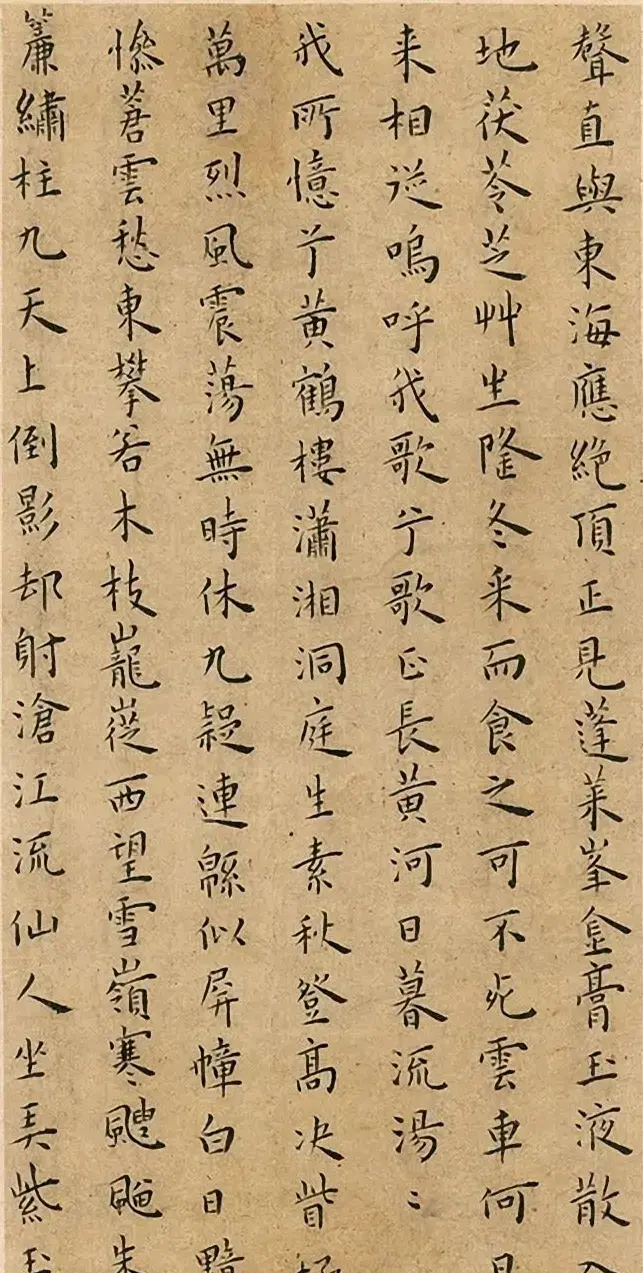 聲直與東海應絕頂正見蓬萊峯金膏玉液散入
地茯苓芝艸生隆冬采而食之可不死雲車何日
来相從嗚呼我歌兮歌正長黄河日暮流湯〻
我所憶兮黄鶴樓瀟湘洞庭生素秋登高决眥極
萬里烈風震蕩無時休九疑連緜似屏幛白日黯
慘蒼雲愁東攀若木枝巃嵸西望雪嶺寒颼飀朱
簾繡柱九天上倒影却射滄江流仙人坐弄紫玉